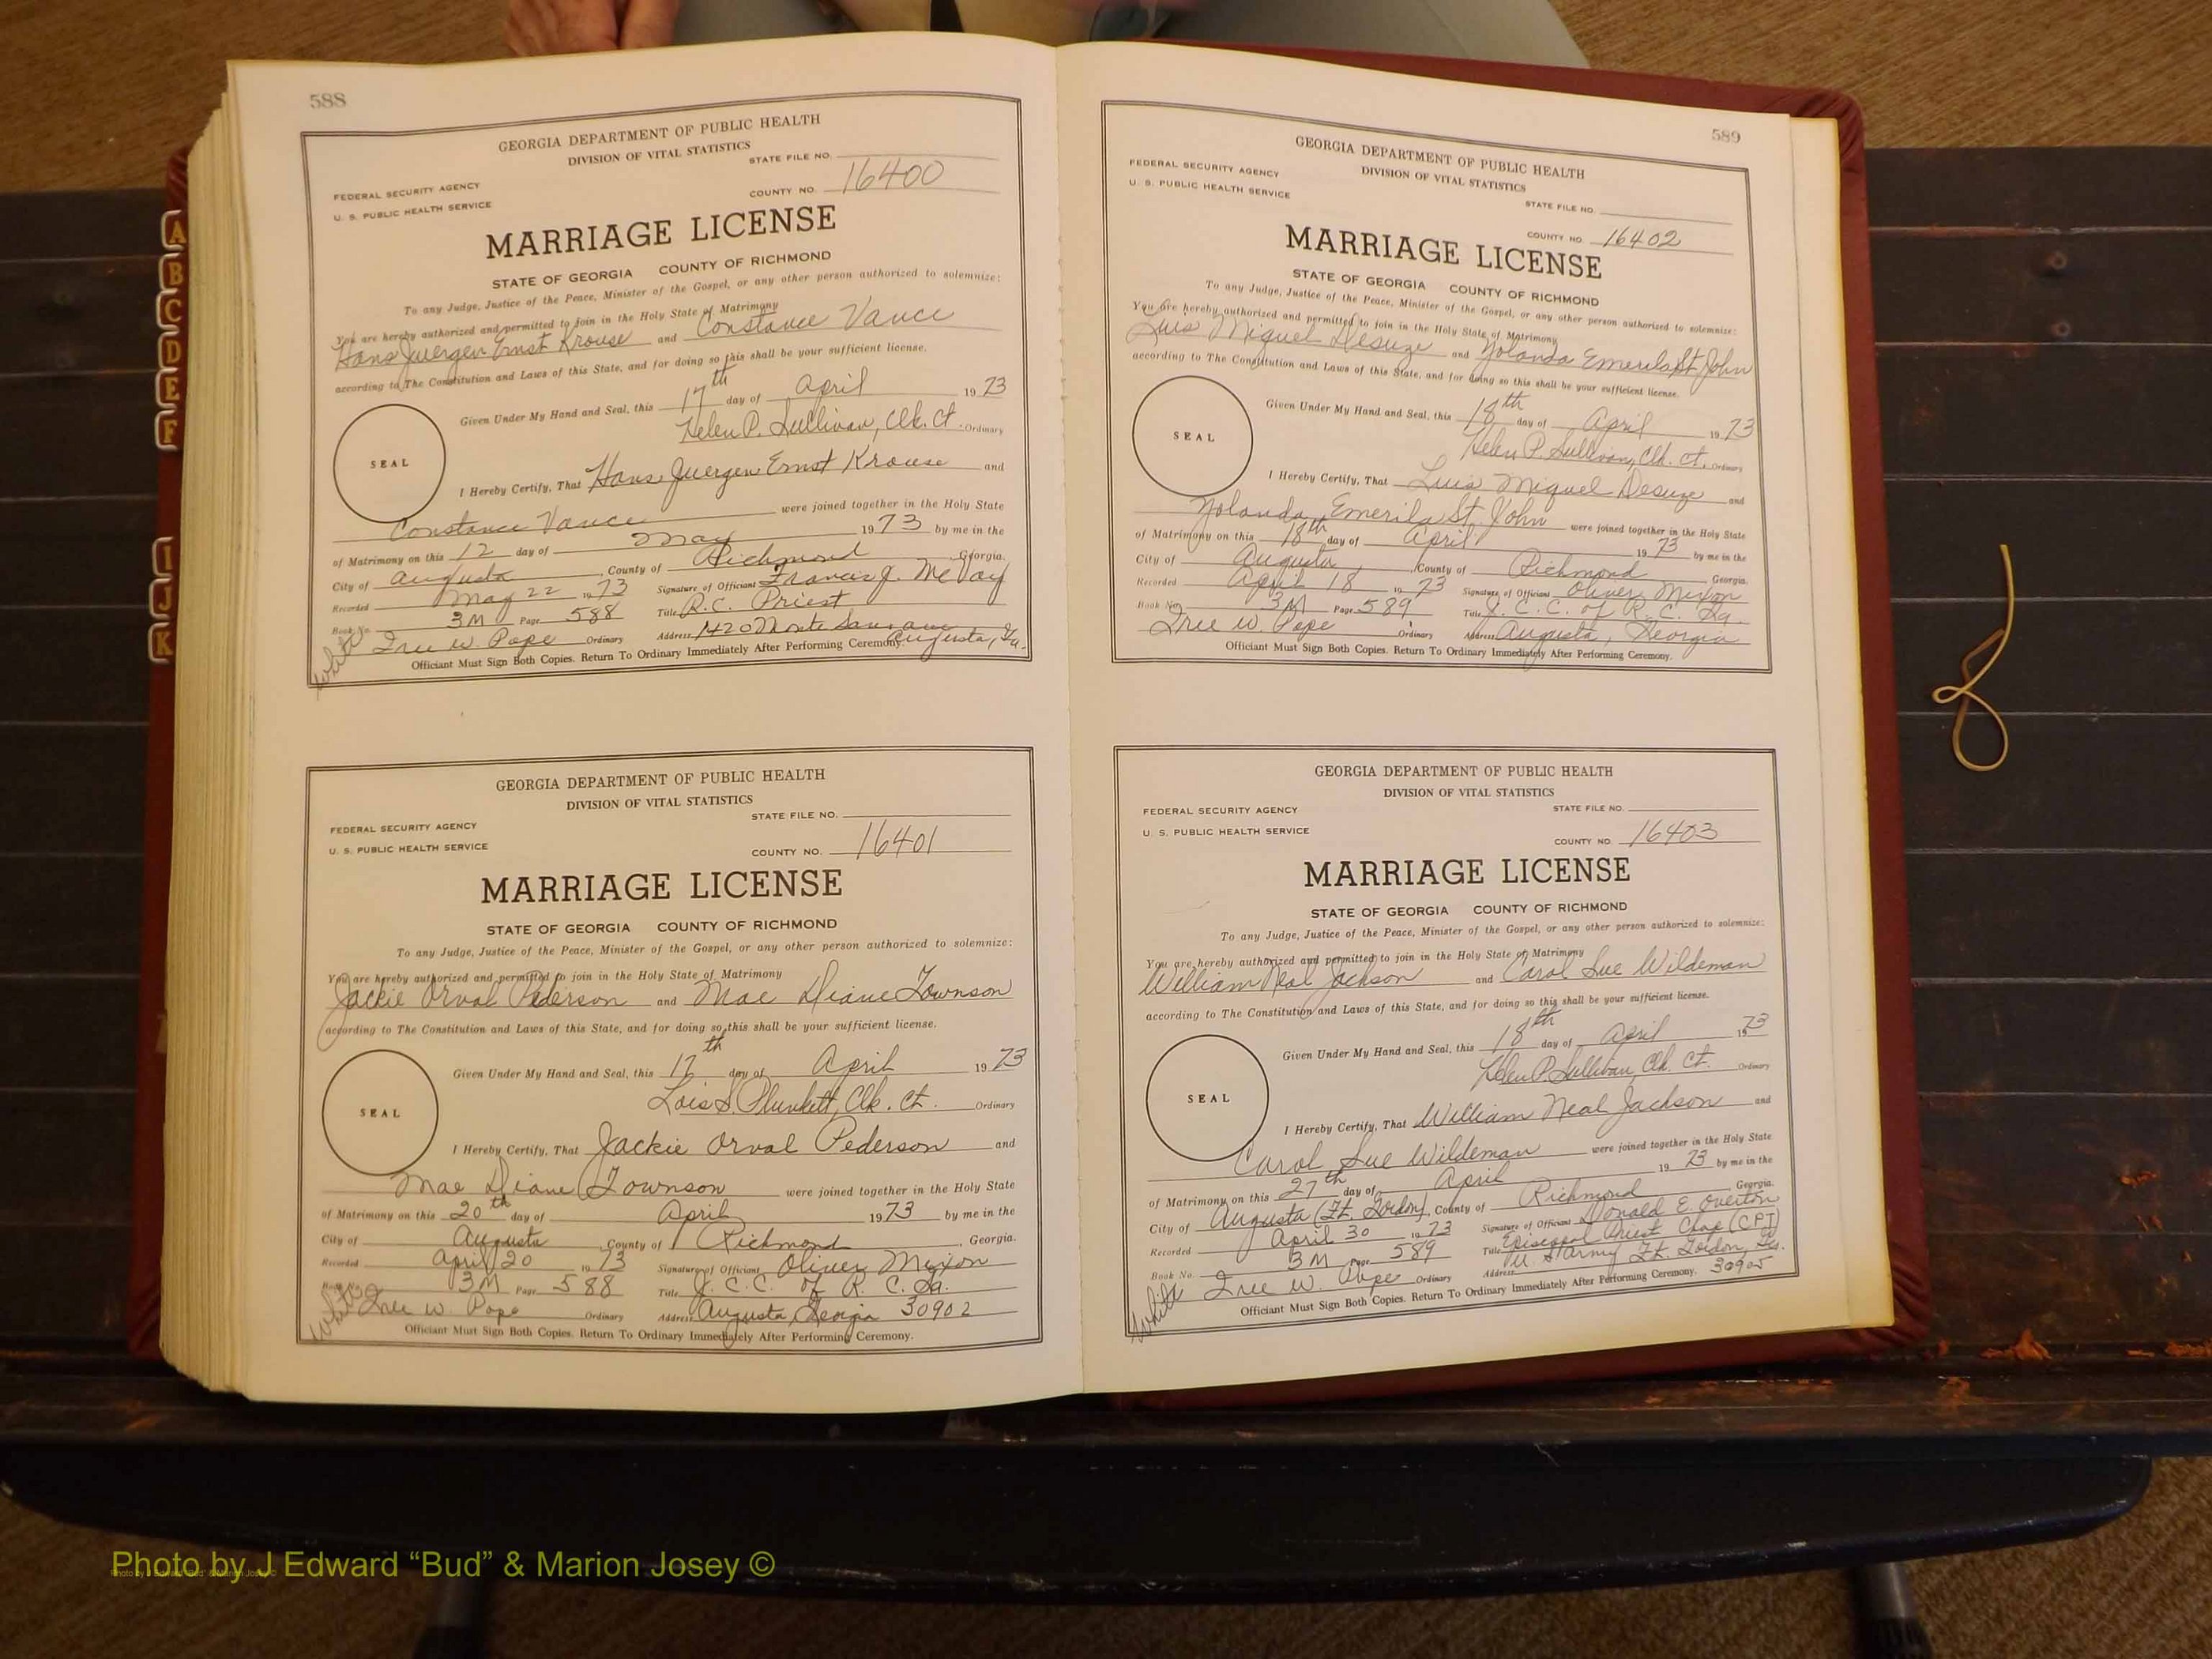 588
GEORGIA DEPARTMENT OF PUBLIC HEALTH
DIVISION OF VITAL STATISTICS
STATE FILE NO.
FEDERAL SECURITY AGENCY
U. S. PUBLIC HEALTH SERVICE
COUNTY NO. 16400
MARRIAGE LICENSE
STATE OF GEORGIA COUNTY OF RICHMOND
To any Judge, Justice of the Peace, Minister of the Gospel, or any other person authorized to solemnize:
You are hereby authorized and permitted to join in the Holy State of Matrimony
Hans Juergen Ernst Krouse and Constance Vance
according to The Constitution and Laws of this State, and for doing so this shall be your sufficient license.
Given Under My Hand and Seal, this 17th day of April 1973
Helen P. Sullivan, Clk. Ct. Ordinary
SEAL
I Hereby Certify, That Hans Juergen Ernst Krouse and
Constance Vance were joined together in the Holy State
of Matrimony on this 12 day of May 1973 by me in the
City of Augusta, County of Richmond Georgia.
Recorded May 22 1973 Signature of Officiant Francis J. McVay
Book No. 3M Page 588 Title R.C. Priest
Iree W. Pope Ordinary Address 1420 Monte Sano Ave
Augusta, Ga.
Officiant Must Sign Both Copies. Return To Ordinary Immediately After Performing Ceremony.
White
GEORGIA DEPARTMENT OF PUBLIC HEALTH
DIVISION OF VITAL STATISTICS
STATE FILE NO.
FEDERAL SECURITY AGENCY
U. S. PUBLIC HEALTH SERVICE
COUNTY NO. 16401
MARRIAGE LICENSE
STATE OF GEORGIA COUNTY OF RICHMOND
To any Judge, Justice of the Peace, Minister of the Gospel, or any other person authorized to solemnize:
You are hereby authorized and permitted to join in the Holy State of Matrimony
Jackie Orval Pederson and Mae Diane Townson
according to The Constitution and Laws of this State, and for doing so this shall be your sufficient license.
Given Under My Hand and Seal, this 17th day of April 1973
Lois S. Plunkett, Clk. Ct. Ordinary
SEAL
I Hereby Certify, That Jackie Orval Pederson and
Mae Diane Townson were joined together in the Holy State
of Matrimony on this 20th day of April 1973 by me in the
City of Augusta, County of Richmond, Georgia.
Recorded April 20 1973 Signature of Officiant Oliver Mixon
Book No. 3M Page 588 Title J. C. C. of R. C. Ga.
Iree W. Pope Ordinary Address Augusta, Georgia 30902
Officiant Must Sign Both Copies. Return To Ordinary Immediately After Performing Ceremony.
White
589
GEORGIA DEPARTMENT OF PUBLIC HEALTH
DIVISION OF VITAL STATISTICS
FEDERAL SECURITY AGENCY
U. S. PUBLIC HEALTH SERVICE
STATE FILE NO.
COUNTY NO. 16402
MARRIAGE LICENSE
STATE OF GEORGIA COUNTY OF RICHMOND
To any Judge, Justice of the Peace, Minister of the Gospel, or any other person authorized to solemnize:
You are hereby authorized and permitted to join in the Holy State of Matrimony
Luis Miguel Desuze and Yolanda Emerila St. John
according to The Constitution and Laws of this State, and for doing so this shall be your sufficient license.
Given Under My Hand and Seal, this 18th day of April 1973
Helen P. Sullivan, Clk. Ct. Ordinary
SEAL
I Hereby Certify, That Luis Miguel Desuze and
Yolanda Emerila St. John were joined together in the Holy State
of Matrimony on this 18th day of April 1973 by me in the
City of Augusta, County of Richmond Georgia.
Recorded April 18 1973 Signature of Officiant Oliver Mixon
Book No. 3M Page 589 Title J. C. C. of R. C. Ga.
Iree W. Pope Ordinary Address Augusta, Georgia
Officiant Must Sign Both Copies. Return To Ordinary Immediately After Performing Ceremony.
GEORGIA DEPARTMENT OF PUBLIC HEALTH
DIVISION OF VITAL STATISTICS
FEDERAL SECURITY AGENCY
STATE FILE NO.
U. S. PUBLIC HEALTH SERVICE
COUNTY NO. 16403
MARRIAGE LICENSE
STATE OF GEORGIA COUNTY OF RICHMOND
To any Judge, Justice of the Peace, Minister of the Gospel, or any other person authorized to solemnize:
You are hereby authorized and permitted to join in the Holy State of Matrimony
William Neal Jackson and Carol Sue Wildeman
according to The Constitution and Laws of this State, and for doing so this shall be your sufficient license.
Given Under My Hand and Seal, this 18th day of April 1973
Helen P. Sullivan, Clk. Ct. Ordinary
SEAL
I Hereby Certify, That William Neal Jackson and
Carol Sue Wildeman were joined together in the Holy State
of Matrimony on this 27th day of April 1973 by me in the
City of Augusta (Ft. Gordon), County of Richmond Georgia.
Recorded April 30 1973 Signature of Officiant Donald E. Overton
Book No. 3M Page 589 Title Episcopal Priest Chap (CPT)
Iree W. Pope Ordinary Address U. S. Army Ft. Gordon, Ga.
30905
Officiant Must Sign Both Copies. Return To Ordinary Immediately After Performing Ceremony.
White
A
B
C
D
E
F
I
J
K
Photo by J Edward “Bud” & Marion Josey ©
Photo by J Edward “Bud” & Marion Josey ©